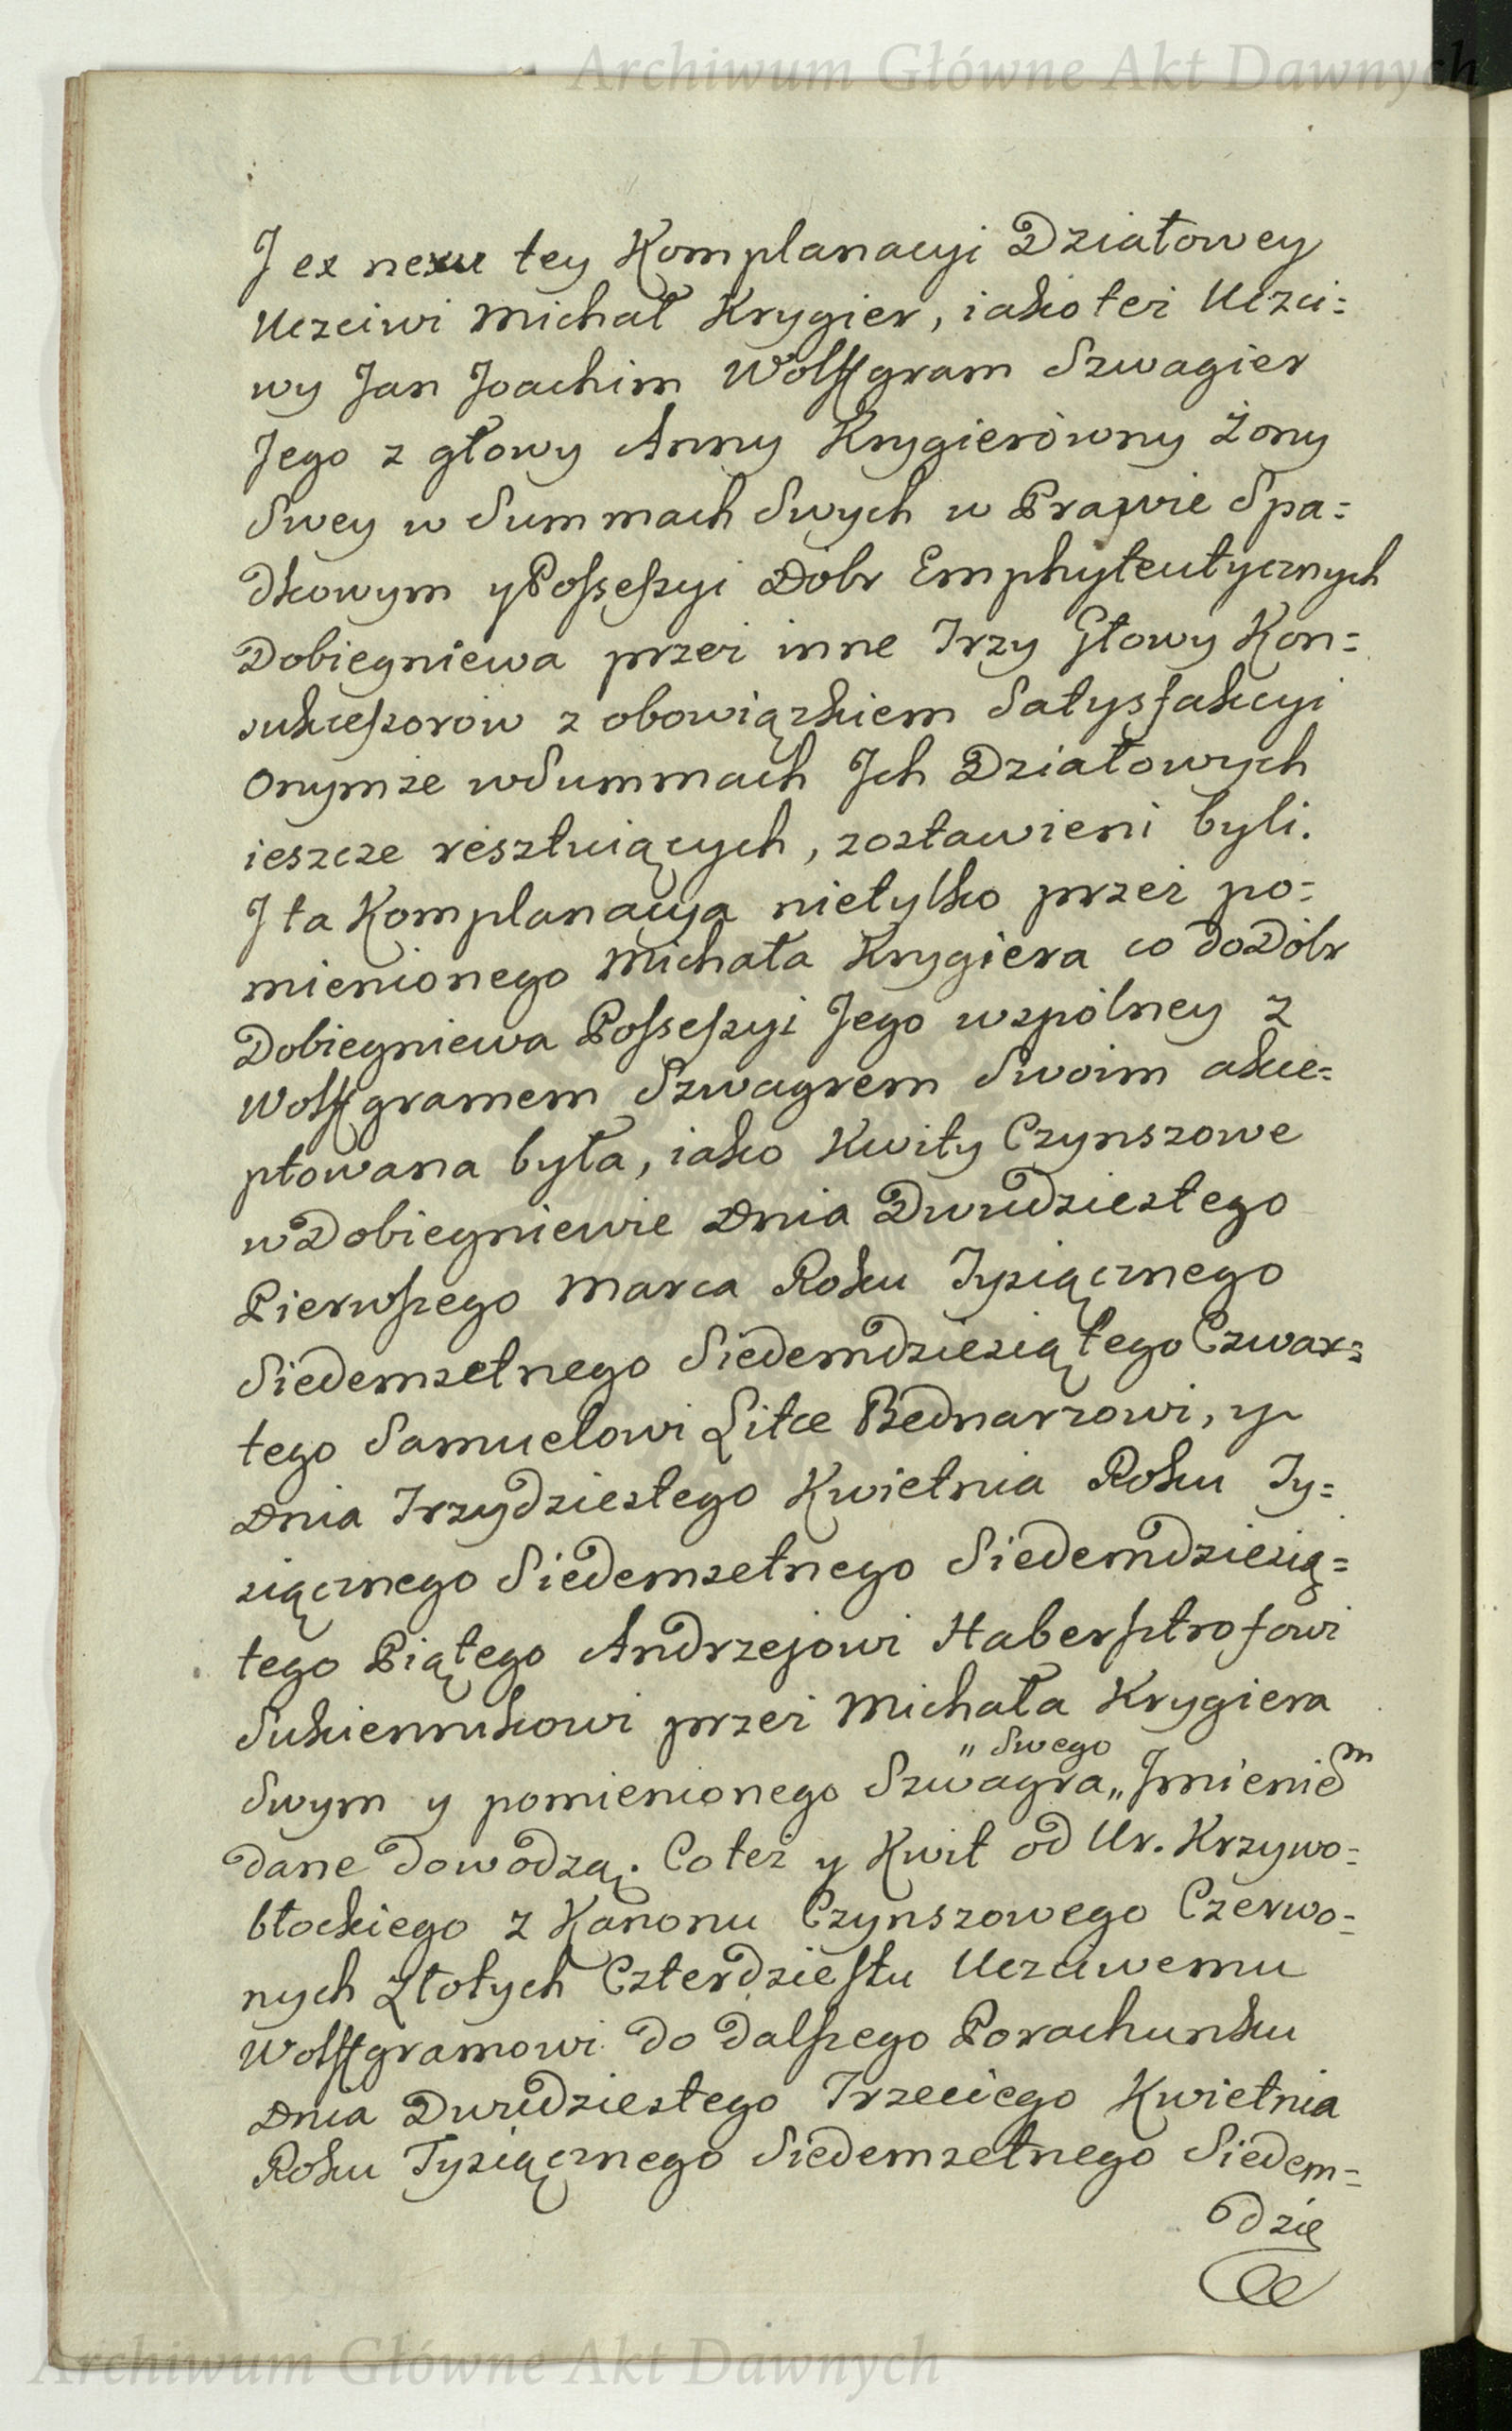 Archiwum Główne Akt Dawnych
J ex nexu tey Komplanacyi Działowey
Uczciwi Michał Krygier, iako też Uczci=
wy Jan Joachim Wolffgram Szwagier
Jego z głowy Anny Krygierowny Żony
Swey w Summach Swych w Prawie Spa=
dkowym y Possessyi Dobr Emphyteutycznych
Dobiegniewa przez inne Trzy Głowy Kon=
sukcessorow z obowiązkiem Satysfakcyi
Onymże w Summach Jch Działowych
ieszcze resztuiących, zostawieni byli.
J ta Komplanacya nietylko przez po=
mienionego Michała Krygiera co do Dobr
Dobiegniewa Possessyi Jego wspólney z
Wolffgramem Szwagrem Swoim akce=
ptowana była, iako Kwity Czynszowe
w Dobiegniewie Dnia Dwudziestego
Pierwszego Marca Roku Tysiącznego
Siedemsetnego Siedemdziesiątego Czwar=
tego Samuelowi Litce Bednarzowi, y
Dnia Trzydziestego Kwietnia Roku Ty=
siącznego Siedemsetnego Siedemdziesią=
tego Piątego Andrzejowi Habersztrofowi
Sukiennikowi przez Michała Krygiera
„ Swego
Swym y pomienionego Szwagra „ Jmieniem
dane dowodzą. Co też y Kwit od Ur. Krzywo=
błockiego z Kanonu Czynszowego Czerwo=
nych Złotych Czterdziestu Uczciwemu
Wolffgramowi do dalszego Porachunku
Dnia Dwudziestego Trzeciego Kwietnia
Roku Tysiącznego Siedemsetnego Siedem=
dzie
Archiwum Główne Akt Dawnych